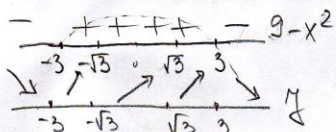 − + + + + − 9-x²
-3 -√3 . √3 3
↘ ↗ ↗ ↗ ↘ y
-3 -√3 √3 3